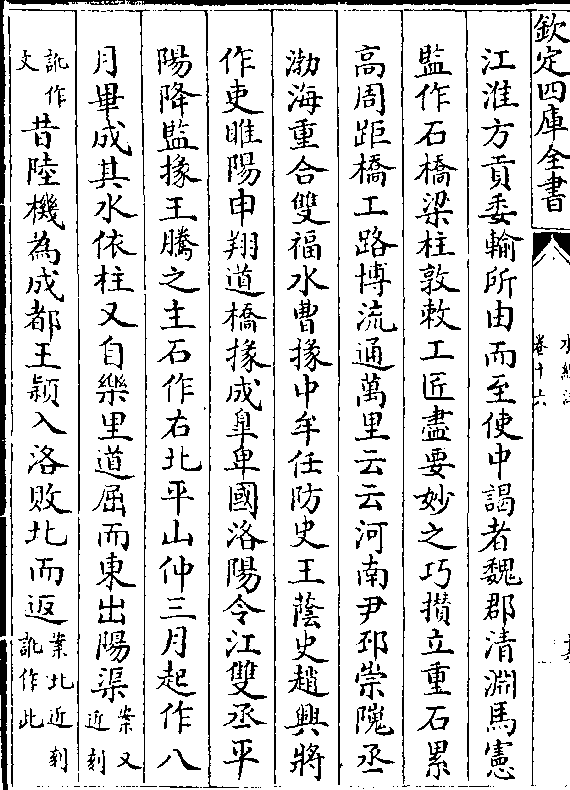 欽定四庫全書
水經注
卷十六
江淮方貢委輸所由而至使中謁者魏郡清淵馬憲
監作石橋梁柱敦敕工匠盡要妙之巧攢立重石累
高周距橋工路博流通萬里云云河南尹邳崇隗丞
渤海重合雙福水曹掾中牟任防史王蔭史趙興將
作吏睢陽申翔道橋掾成臯卑國洛陽令江雙丞平
陽降監掾王騰之主石作右北平山仲三月起作八
月畢成其水依柱又自樂里道屈而東出陽渠案又近刻
訛作文昔陸機為成都王潁入洛敗北而返案北近刻訛作此